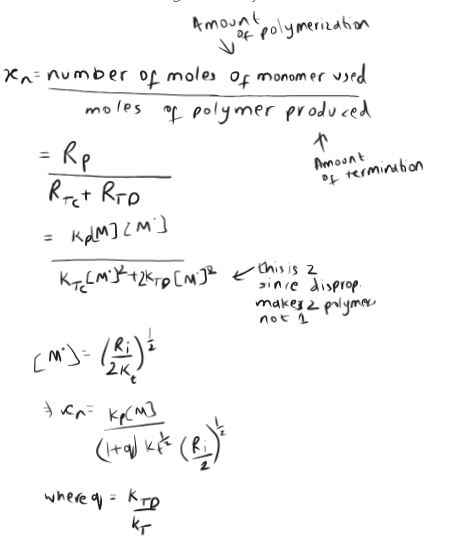 Amount
of polymerization
↓
xₙ = number of moles of monomer used
moles of polymer produced
↑
Amount
of termination
= Rp
R_Tc + R_TD
= Kp[M][M·]
K_Tc[M·]² + 2K_TD[M·]²
← this is 2
since disprop.
makes 2 polymer
not 1
[M·] = (Ri/2K_t)^½
⇒ xₙ = Kp[M]
(1+q) K_t^½ (Ri/2)^½
where q = K_TD
K_T